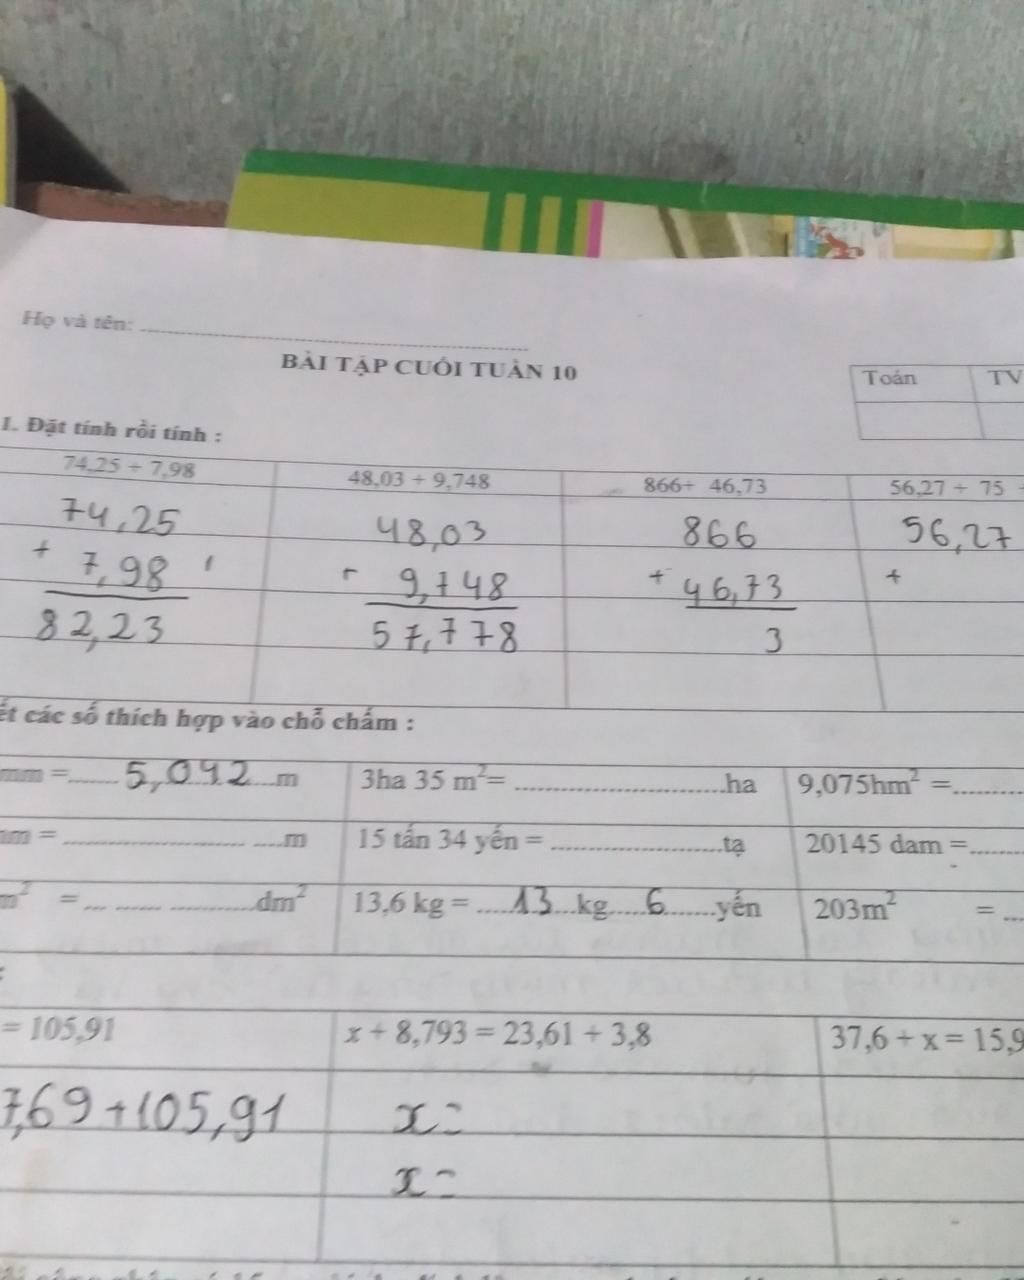 Họ và tên:
BÀI TẬP CUỐI TUẦN 10
Toán TV
1. Đặt tính rồi tính :
74,25 + 7,98 48,03 + 9,748 866+ 46,73 56,27 + 75 +
74,25 48,03 866 56,27
+ 7,98 + 9,748 + 46,73 +
82,23 57,778 3
ết các số thích hợp vào chỗ chấm :
mm = 5,092 m 3ha 35 m²= ha 9,075hm² =
m = m 15 tấn 34 yến = tạ 20145 dam =
m² = dm² 13,6 kg = 13 kg 6 yến 203m² =
= 105,91 x + 8,793 = 23,61 + 3,8 37,6 + x = 15,9
7,69+105,91 x =
x =